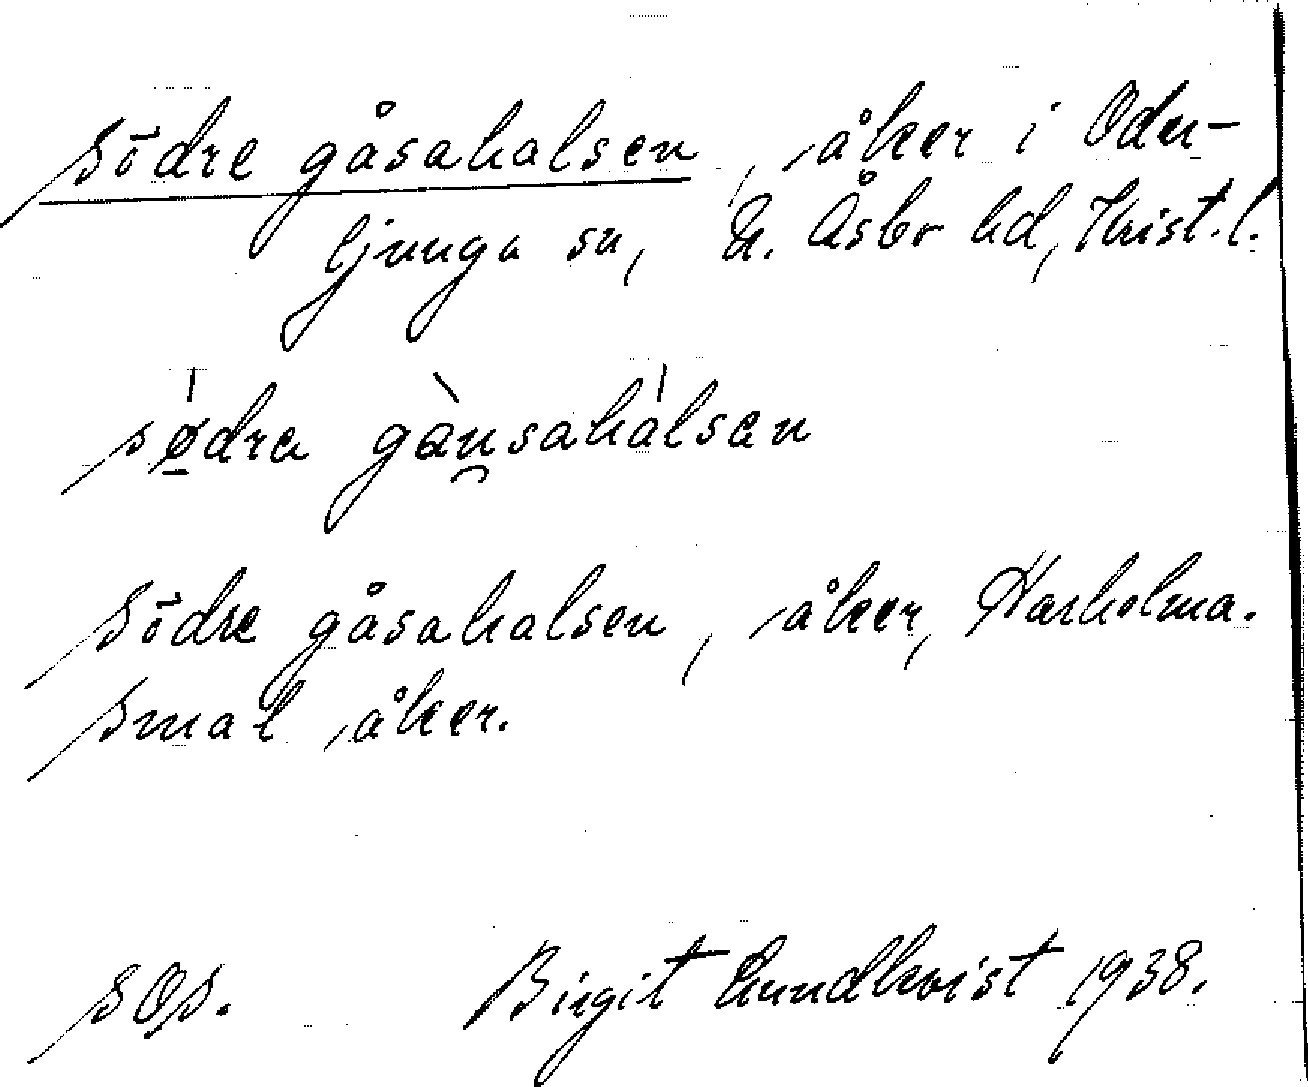 Södre gåsahalsen, åker i Oder-
ljunga sn, N. Åsbo hd, Krist. l.
sø̱dra gànsahálsan
Södre gåsahalsen, åker, Harholma.
Smal åker.
SOS. Birgit Lundkvist 1938.